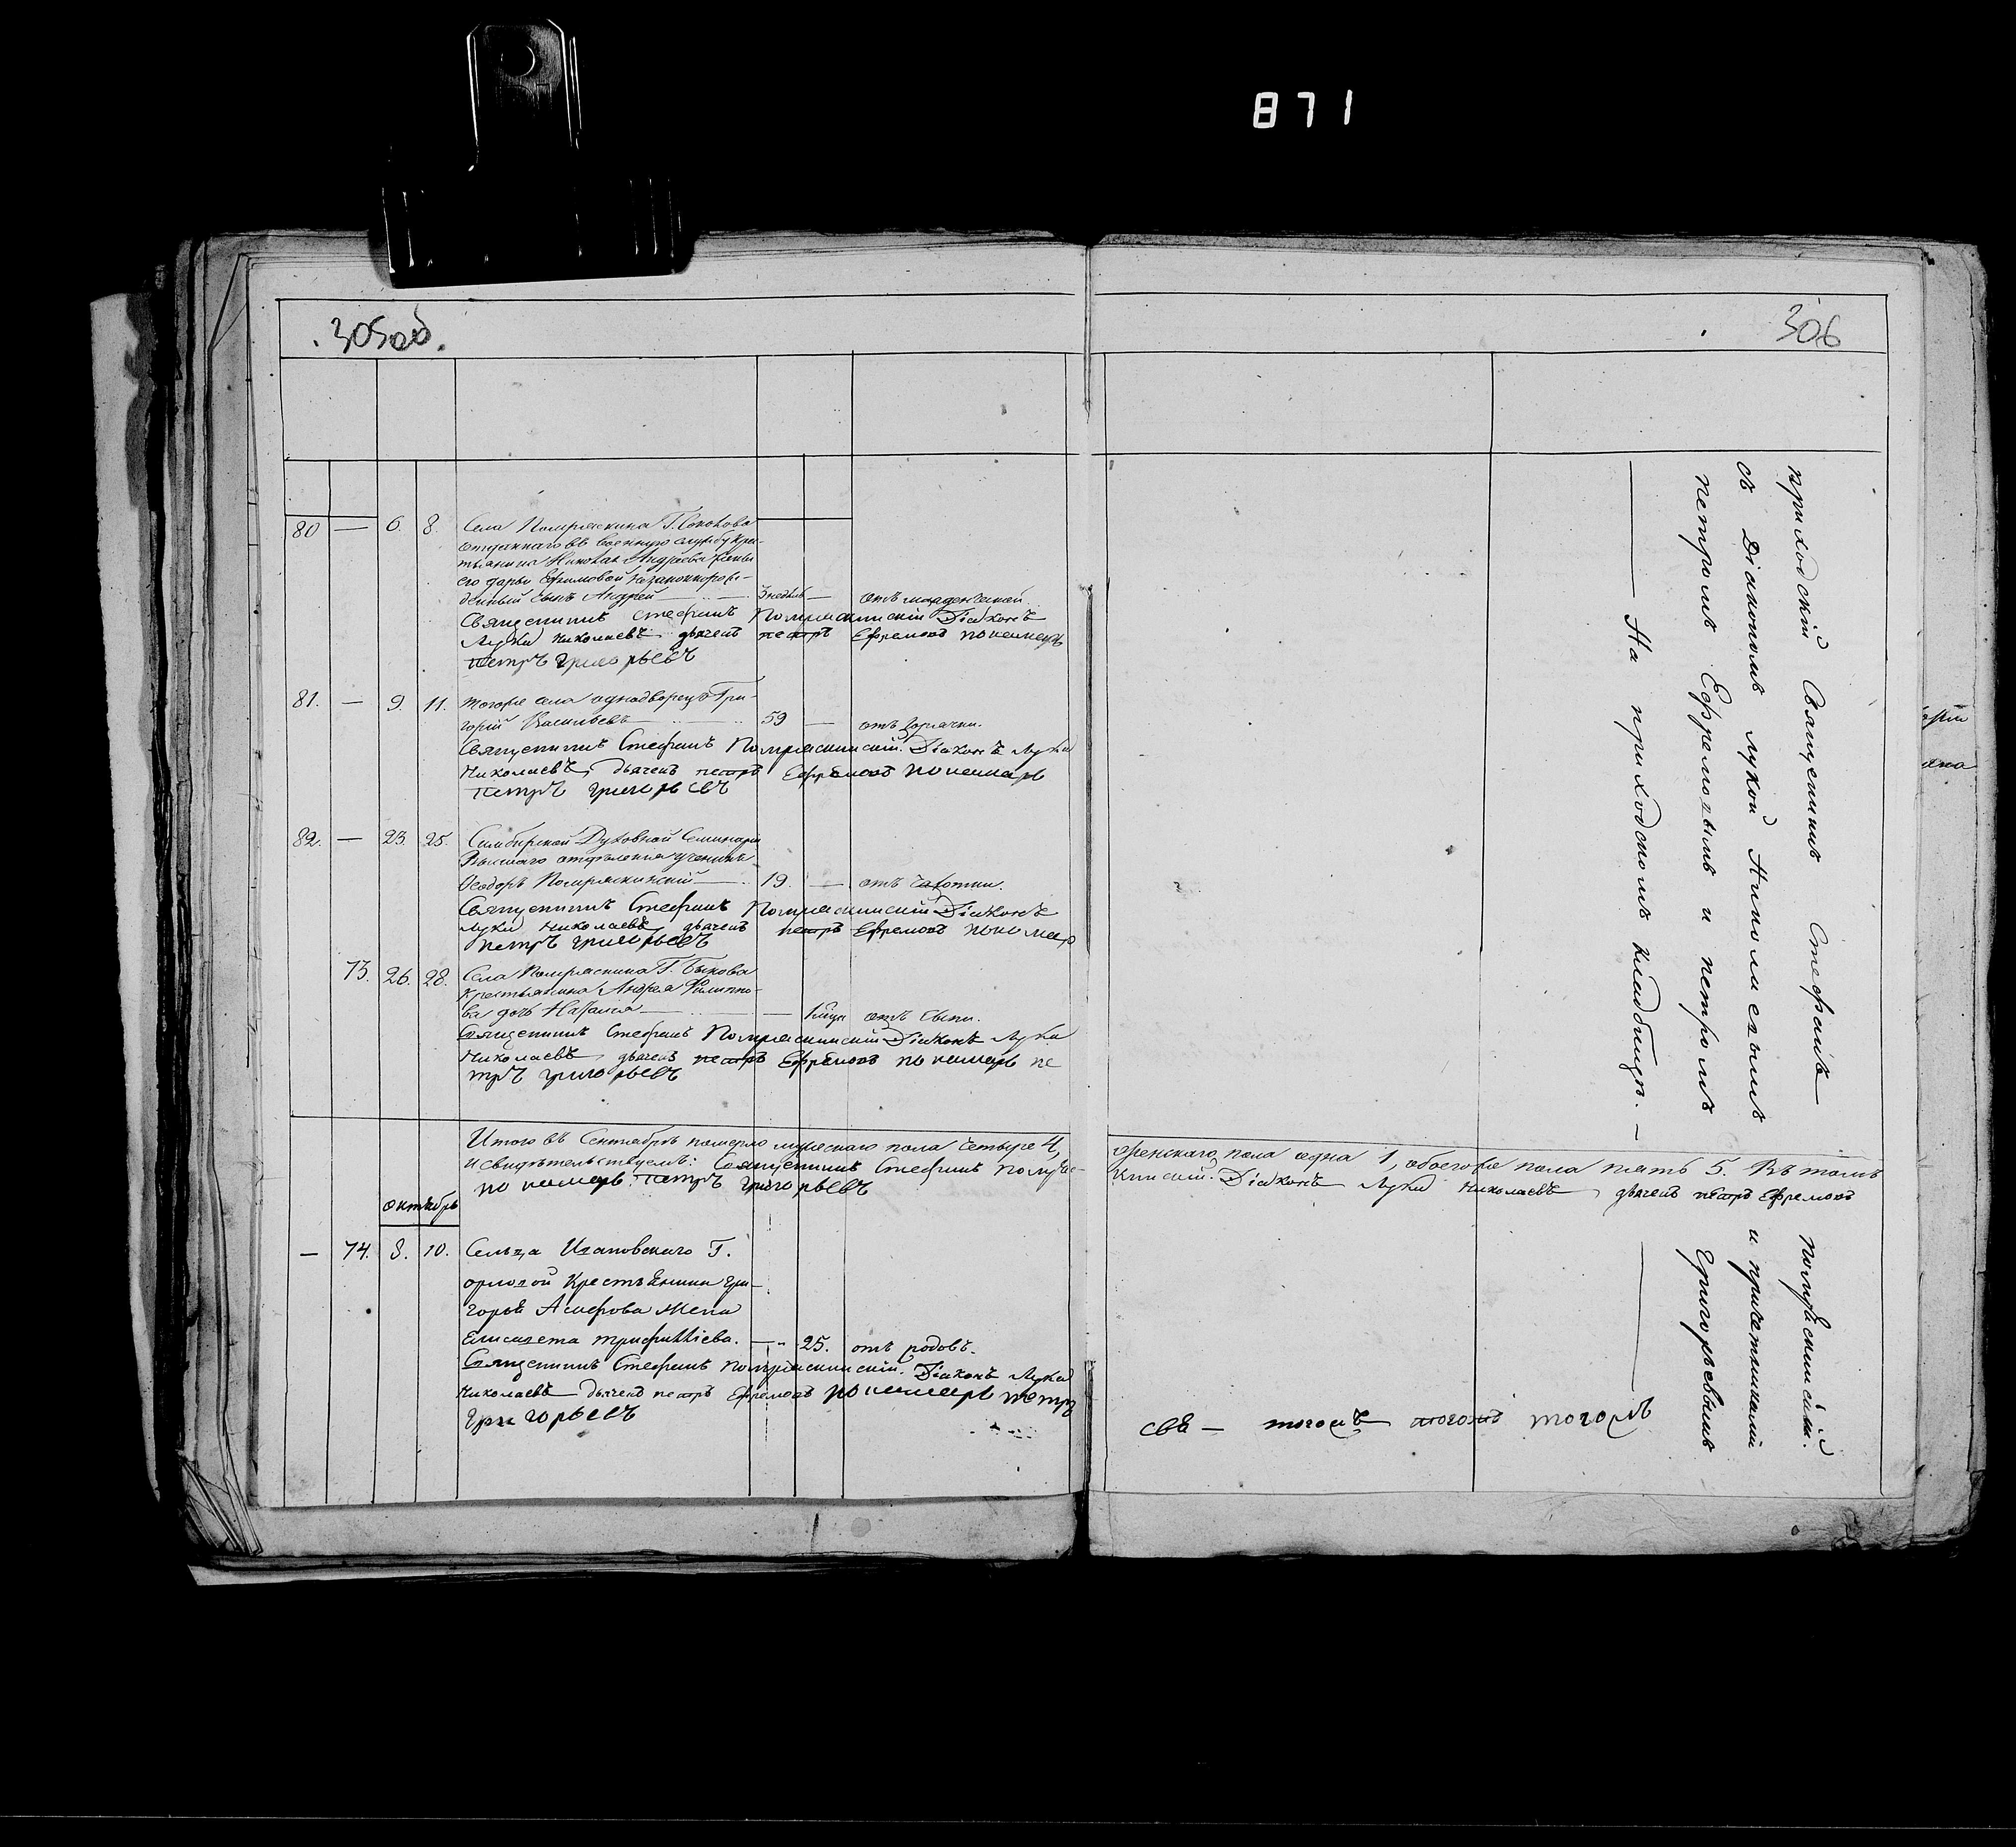 871
305об.
306
80 — 6. 8. Села Помряскина Г.
отданнаго въ военную службу кре-
стьянина Николая Андреева жены
его Дарьи Ефимовой незаконнорож-
денный сынъ Андрей — 3 недѣль — отъ младенческой.
Священникъ Стефанъ Помряскинскій Діаконъ
Лука Николаевъ дьячекъ петръ Ефремовъ пономарь
петръ григорьевъ
81. — 9. 11. Тогоже села однодворецъ Гри-
горій Васильевъ — 59 — отъ горячки.
Священникъ Стефанъ Помряскинскій. Діаконъ Лука
Николаевъ, дьячекъ петръ Ефремовъ пономарь
петръ григорьевъ
82. — 23. 25. Симбирской Духовной Семинаріи
Высшаго отдѣленія ученикъ
Ѳеодоръ Помряскинскій — 19. — отъ чахотки.
Священникъ Стефанъ Помряскинскій Діаконъ
Лука Николаевъ, дьячекъ петръ Ефремовъ пономар
петръ григорьевъ
73. 26. 28. Села Помряскина Г. Быкова
крестьянина Андрея Филиппо-
ва дочь — отъ сыпи.
Священникъ Стефанъ Помряскинскій Діаконъ Лука
Николаевъ, дьячекъ петръ Ефремовъ пономарь пе
тръ григорьевъ
Итого въ Сентябрѣ померло мужескаго пола четыре 4, женскаго пола одна 1, обоегоже пола пять 5. Въ томъ
и свидѣтельствуемъ: Священникъ Стефанъ Помряс-кинскій. Діаконъ Лука Николаевъ, дьячекъ петръ Ефремовъ
пономарь. петръ григорьевъ
октябрь
— 74. 8. 10. Сельца Ивановскаго Г.
орловой Крестьянина гри-
горья жена
Елисавета — 25. отъ родовъ.
Священникъ Стефанъ помряскинскій. Діаконъ Лука
Николаевъ дьячекъ петръ Ефремовъ пономарь петръ
григорьевъ
приходскій Священникъ Стефанъ — помряскинскій
съ Діакономъ лукой Николаевымъ и причетниками
петромъ Ефремовымъ и петромъ Григорьевымъ
— На приходскомъ кладбищѣ. —
свя — тогожъ тогожъ тогожъ